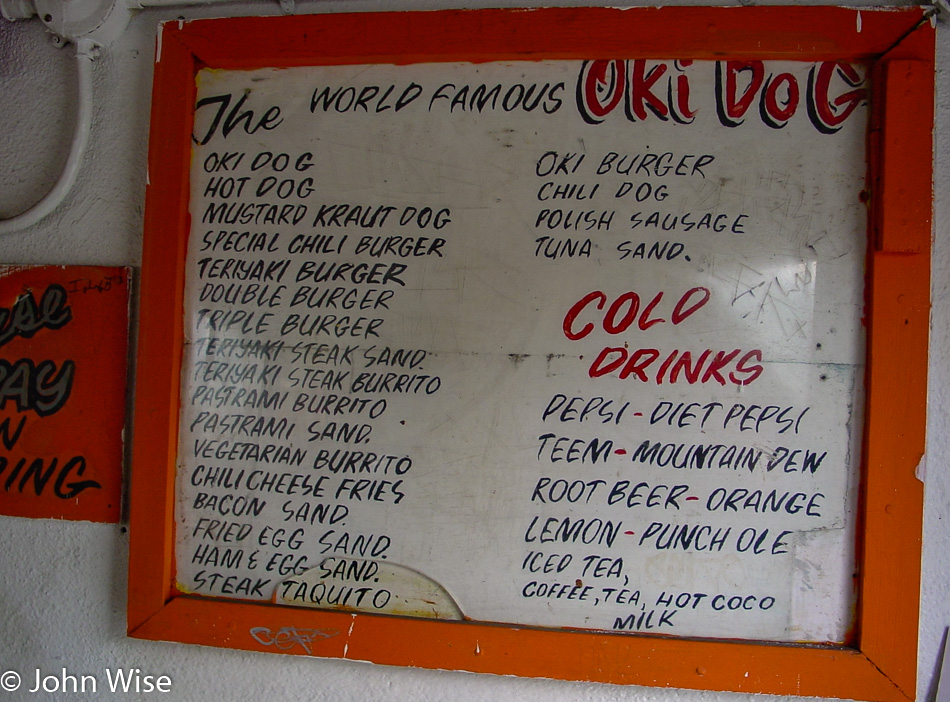 The WORLD FAMOUS OKi DoG
OKI DOG
HOT DOG
MUSTARD KRAUT DOG
SPECIAL CHILI BURGER
TERIYAKI BURGER
DOUBLE BURGER
TRIPLE BURGER
TERIYAKI STEAK SAND.
TERIYAKI STEAK BURRITO
PASTRAMI BURRITO
PASTRAMI SAND.
VEGETARIAN BURRITO
CHILI CHEESE FRIES
BACON SAND.
FRIED EGG SAND.
HAM & EGG SAND.
STEAK TAQUITO
OKI BURGER
CHILI DOG
POLISH SAUSAGE
TUNA SAND.
COLD
DRINKS
PEPSI - DIET PEPSI
TEEM - MOUNTAIN DEW
ROOT BEER - ORANGE
LEMON - PUNCH OLE
ICED TEA,
COFFEE, TEA, HOT COCO
MILK
PAY
© John Wise